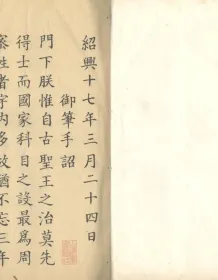 紹興十七年三月二十四日
御筆手詔
門下朕惟自古聖王之治莫先
得士而國家科目之設最爲周
密姓者字內多故猶不忘三年